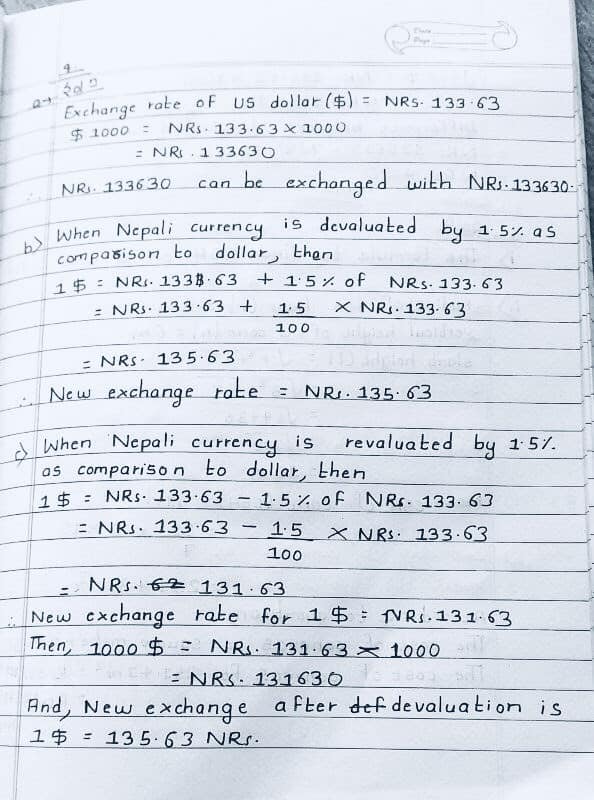 Date
Page
9.
a→ Solⁿ
Exchange rate of US dollar ($) = NRs. 133.63
$ 1000 = NRs. 133.63 × 1000
= NRs. 133630
∴ NRs. 133630 can be exchanged with NRs. 133630.
b> When Nepali currency is devaluated by 1.5% as
comparison to dollar, then
1 $ = NRs. 133.63 + 1.5% of NRs. 133.63
= NRs. 133.63 + 1.5/100 × NRs. 133.63
= NRs. 135.63
∴ New exchange rate = NRs. 135.63
c) When Nepali currency is revaluated by 1.5%
as comparison to dollar, then
1 $ = NRs. 133.63 - 1.5% of NRs. 133.63
= NRs. 133.63 - 1.5/100 × NRs. 133.63
= NRs. 131.63
∴ New exchange rate for 1 $ = NRs. 131.63
Then, 1000 $ = NRs. 131.63 × 1000
= NRs. 131630
And, New exchange after devaluation is
1 $ = 135.63 NRs.